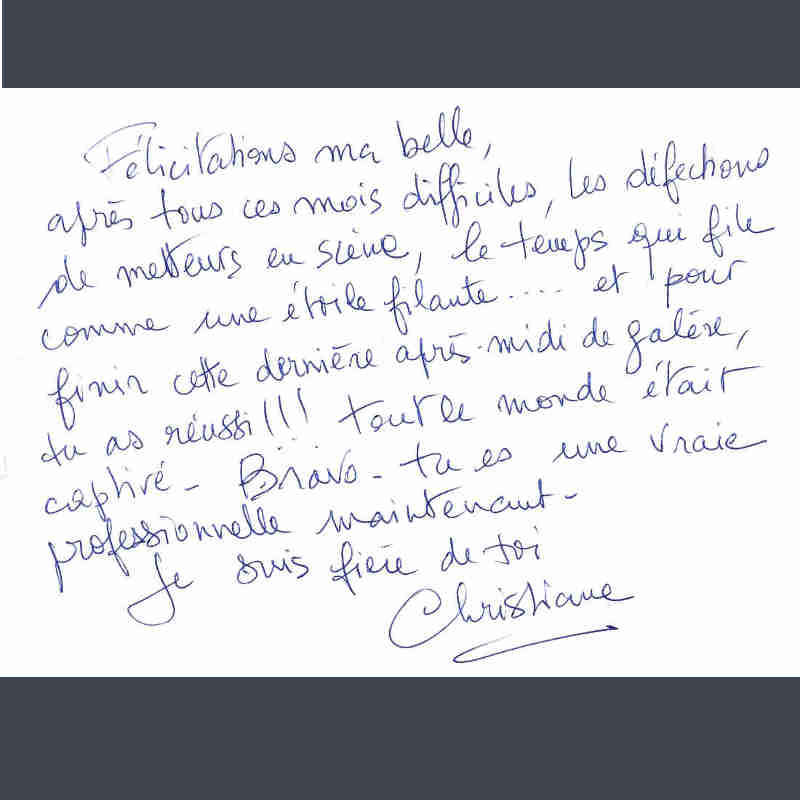 Félicitations ma belle,
après tous ces mois difficiles, les défections
de metteurs en scène, le temps qui file
comme une étoile filante.... et pour
finir cette dernière après-midi de galère,
tu as réussi!!! tout le monde était
captivé - Bravo - tu es une vraie
professionnelle maintenant -
Je suis fière de toi
Christiane